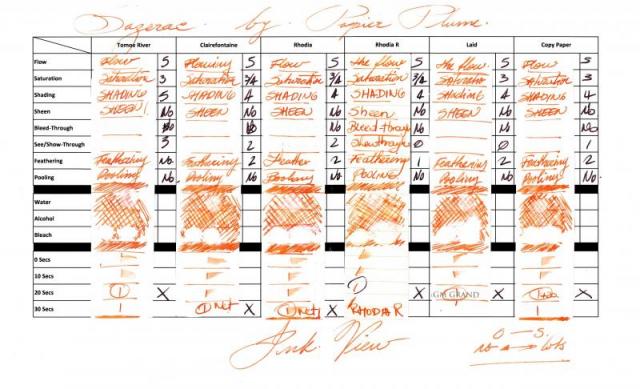 Sazerac by Papier Plume.
Tomoe River Clairefontaine Rhodia Rhodia R Laid Copy Paper
Flow Flow 5 Flowing 5 Flow 5 The flow 5 the flow. 5 Flow 5
Saturation Saturation 3 Saturation 3/4 Saturation 3/4 Saturation 3/4 Saturation 3 Saturation 3
Shading SHADING 5 SHADING 4 SHADING 4 SHADING 4 Shading 4 SHADING 4
Sheen SHEEN No SHEEN No SHEEN No Sheen No SHEEN No SHEEN No
Bleed-Through No No No Bleed through No No No
See/Show-Through 3 2 2 Showthrough 0 0 1
Feathering Feathering No Feathering 2 Feather 2 Feathering 1 Feathering 2 Feathering 2
Pooling Pooling No Pooling No Pooling No POOLING No Pooling No Pooling No
Water
Alcohol
Bleach
0 Secs
10 Secs
20 Secs 1 X 1 X GM GRAND X X
30 Secs 1 1 Net X 1 X RHODIA R 1
Ink View
0 — 5.
no lots